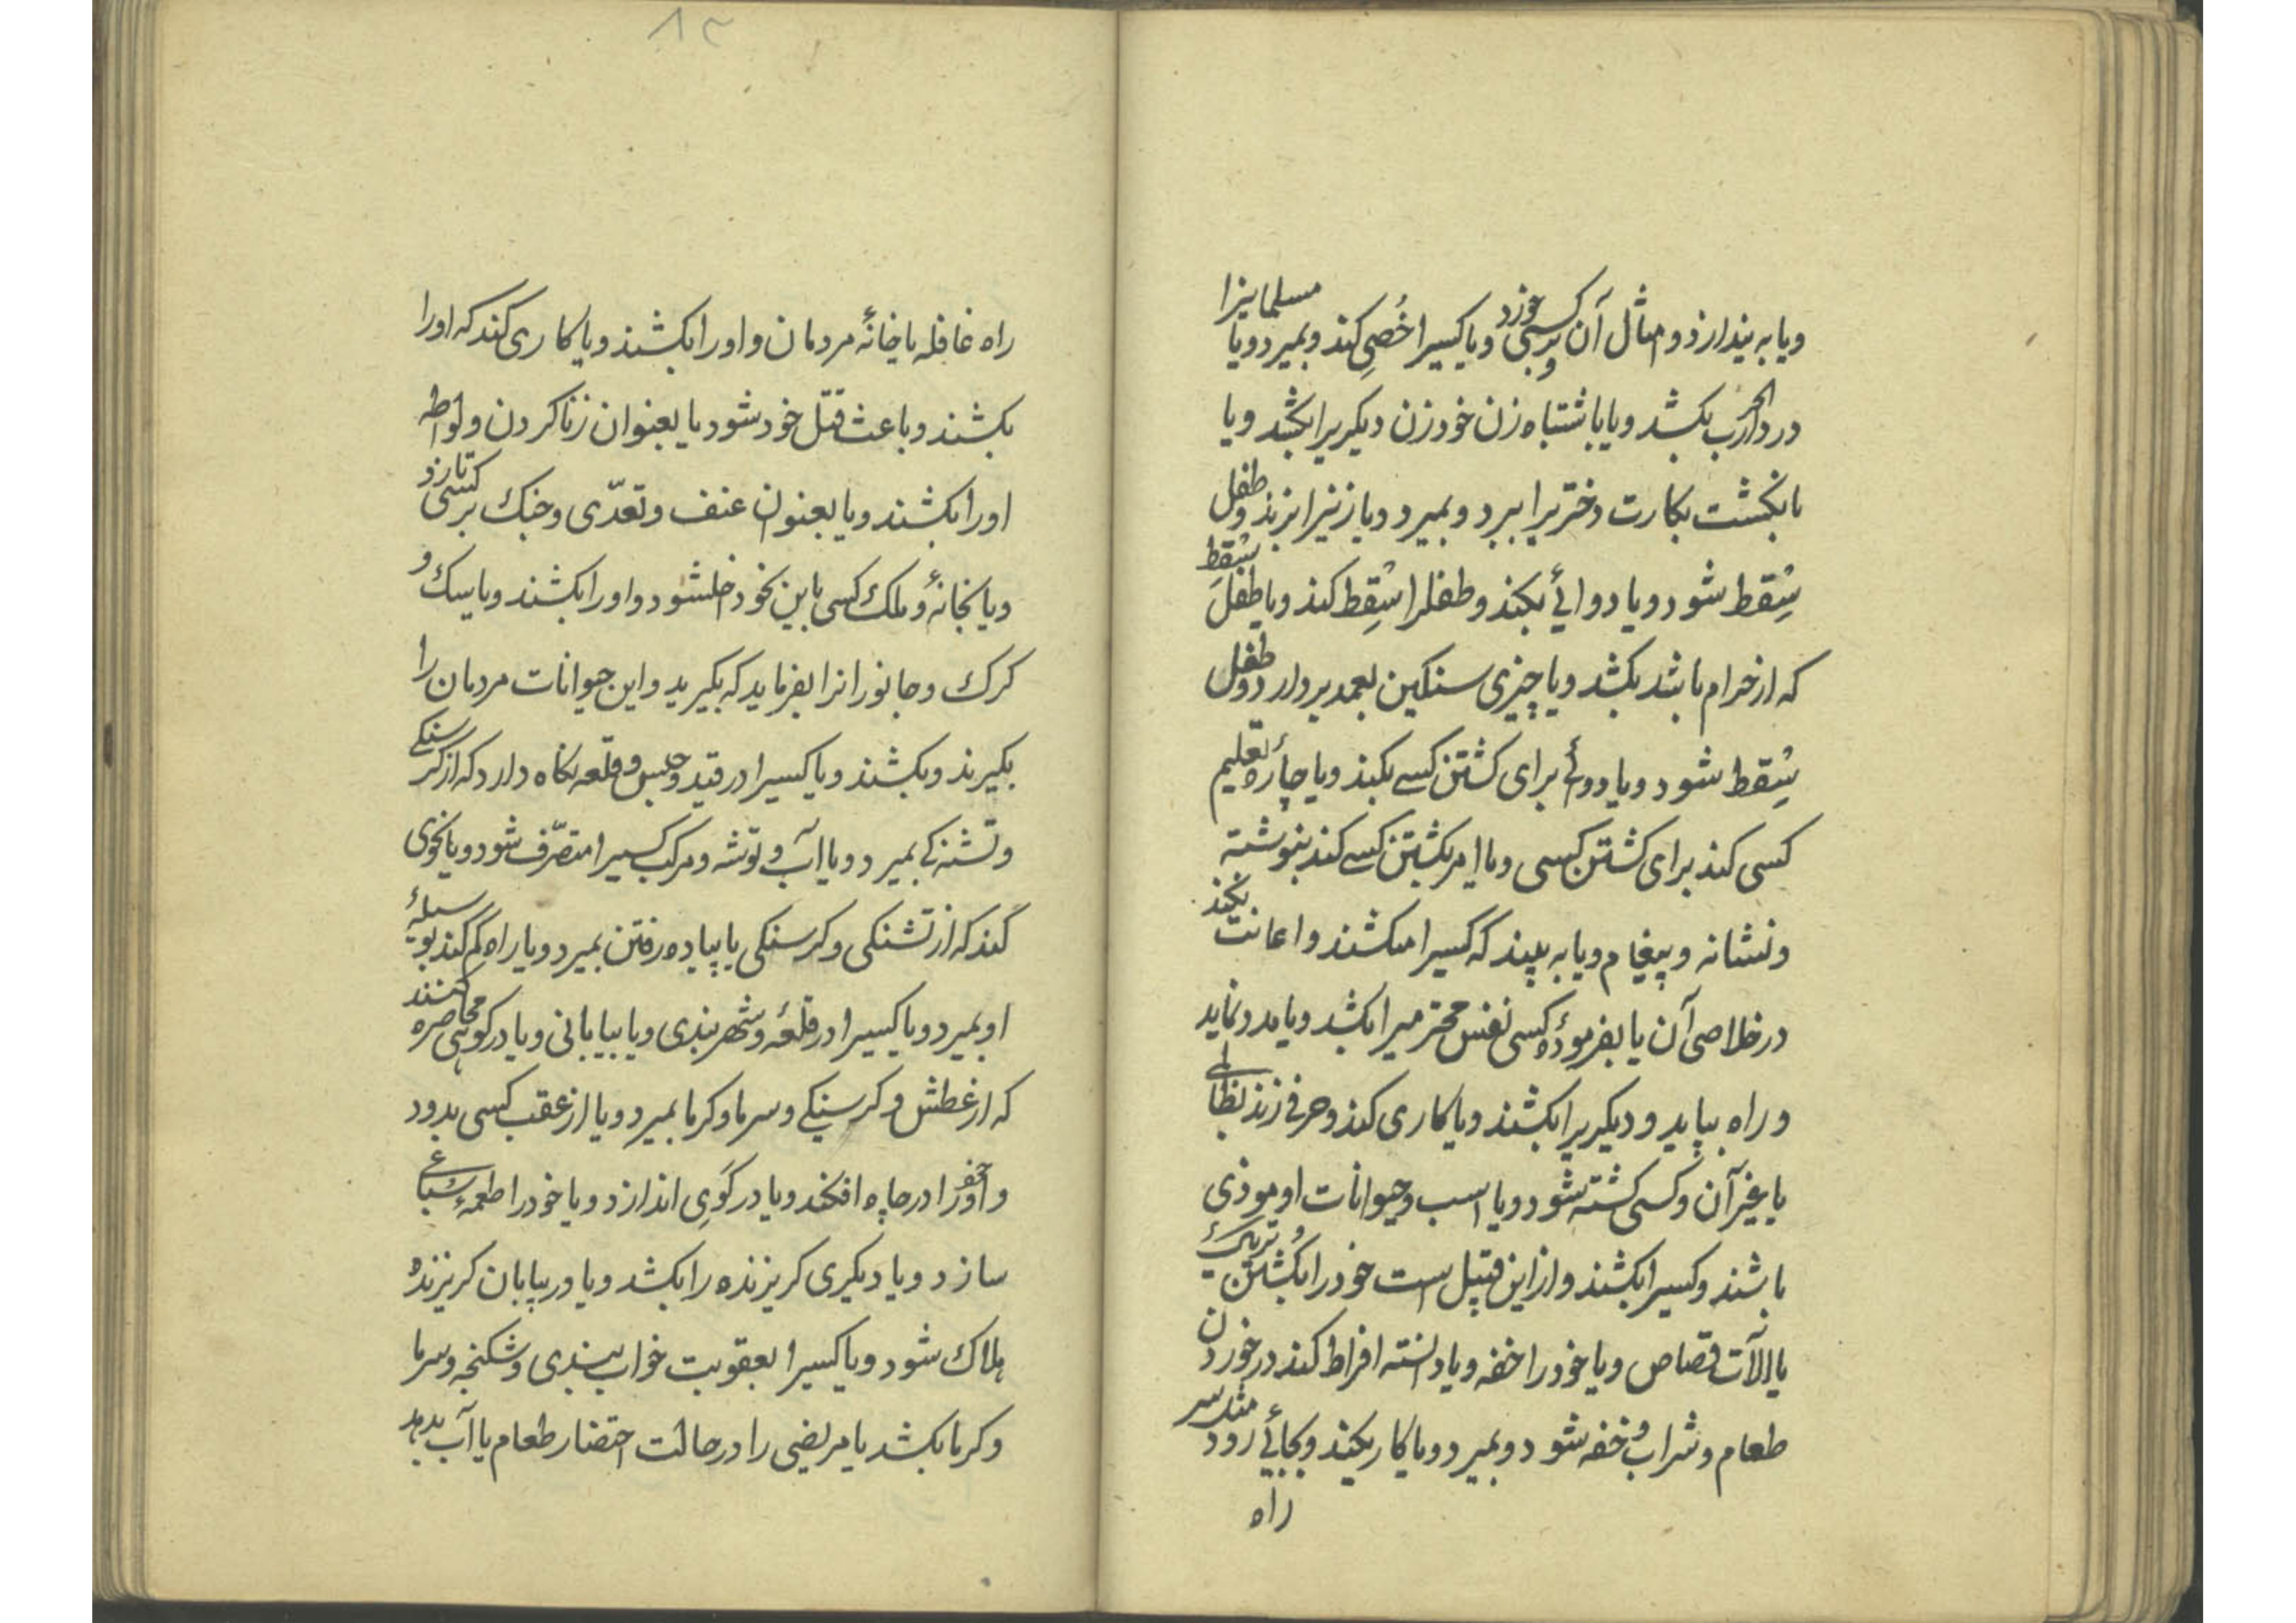 ویا به بیندازد و امثال آن بر کسی خورد ویا کسیرا خُصِی کند وبمیرد ویا مسلمانیرا
در دار الحرب بکشد ویا باشتباه زن خود زن دیکریرا بکشد ویا
بانکشت بکارت دختریرا ببرد و بمیرد ویا زنیرا بزند وطفل
سِقط شود ویا دوائی بکند وطفلرا سِقط کند ویا طفل سِقط
که از حرام باشد بکشد ویا چیزی سنکین بعمد بردارد وطفل
سِقط شود ویا دوائی برای کشتن کسی بکند ویا چارهٔ تعلیم
کسی کند برای کشتن کسی ویا امر بکشتن کسی کند بنوشته
ونشانه و پیغام ویا به بیند که کسیرا میکشند و اعانت نکند
در خلاصی آن یا بفرمودهٔ کسی نفس محترمیرا بکشد ویا مدد نماید
و راه بیاید و دیکریرا بکشند ویا کاری کند وحرفی زند بظالمی
یا غیر آن وکسی کشته شود ویا اسب وحیوانات او موذی
باشند وکسیرا بکشند و از این قبیل است خود را بکُشتن
یا بآلات قصاص ویا خود را خفه ویا دانسته افراط کند در خوردن
طعام و شراب و خفه شود و بمیرد ویا کاریکند وبجائی رود مثل سر
راه
۸۳
راه غافله یا خانهٔ مردمان و اورا بکشند ویا کاری کند که اورا
بکشند وباعث قتل خود شود یا بعنوان زنا کردن و لواطه
اورا بکشند ویا بعنوان عنف وتعدّی وجنک بر کسی تازد
ویا بخانهٔ وملک کسی باین نحو داخلشود واورا بکشند ویا سک و
کرک وجانورانرا بفرماید که بکیرید واین حیوانات مردمان را
بکیرند وبکشند ویا کسیرا در قید وحبس وقلعه نکاه دارد که از کرسنکی
وتشنکی بمیرد ویا آب و توشه ومرکب کسیرا متصرّف شود ویا نحوی
کند که از تشنکی وکرسنکی یا پیاده رفتن بمیرد ویا راه کم کند بوسیلهٔ
او بمیرد ویا کسیرا در قلعهٔ وشهربندی ویا بیابانی ویا در کوهی محاصره کنند
که از عطش وکرسنکی وسرما وکرما بمیرد ویا از عقب کسی بدود
و آخر اورا در چاه افکند ویا در کَوی اندازد ویا خود را طعمهٔ سباعی
سازد ویا دیکری کریزنده را بکشد ویا در بیابان کریزنده
هلاک شود ویا کسیرا بعقوبت خواب بندی وشکنجه وسرما
وکرما بکشد یا مریضی را در حالت احتضار طعام یا آب بدهد